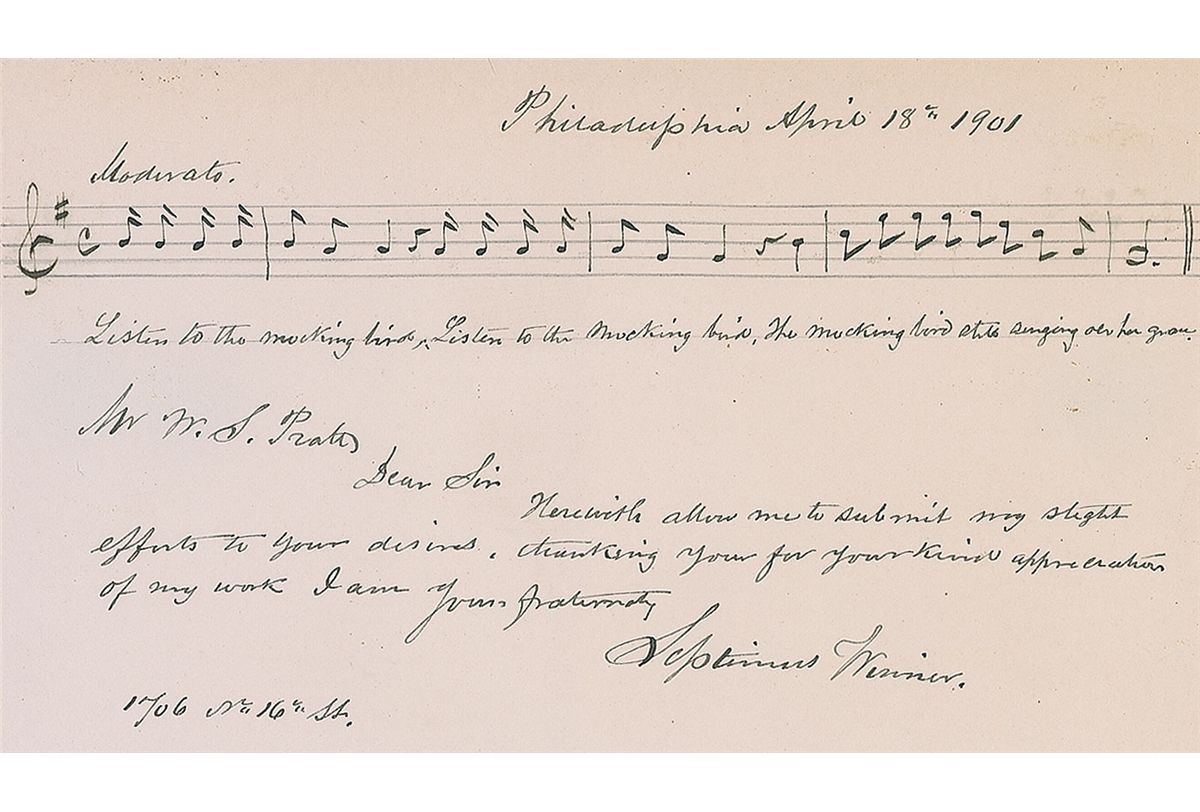 Philadelphia April 18th 1901
Moderato.
Listen to the mocking bird, Listen to the Mocking bird, The mocking bird still singing oer her grave.
Mr W. S. Pratt
Dear Sir
Herewith allow me to submit my slight
efforts to your desires, thanking your for your kind appreciation
of my work I am Yours fraternaly
Septimus Winner.
1706 No 16th St.